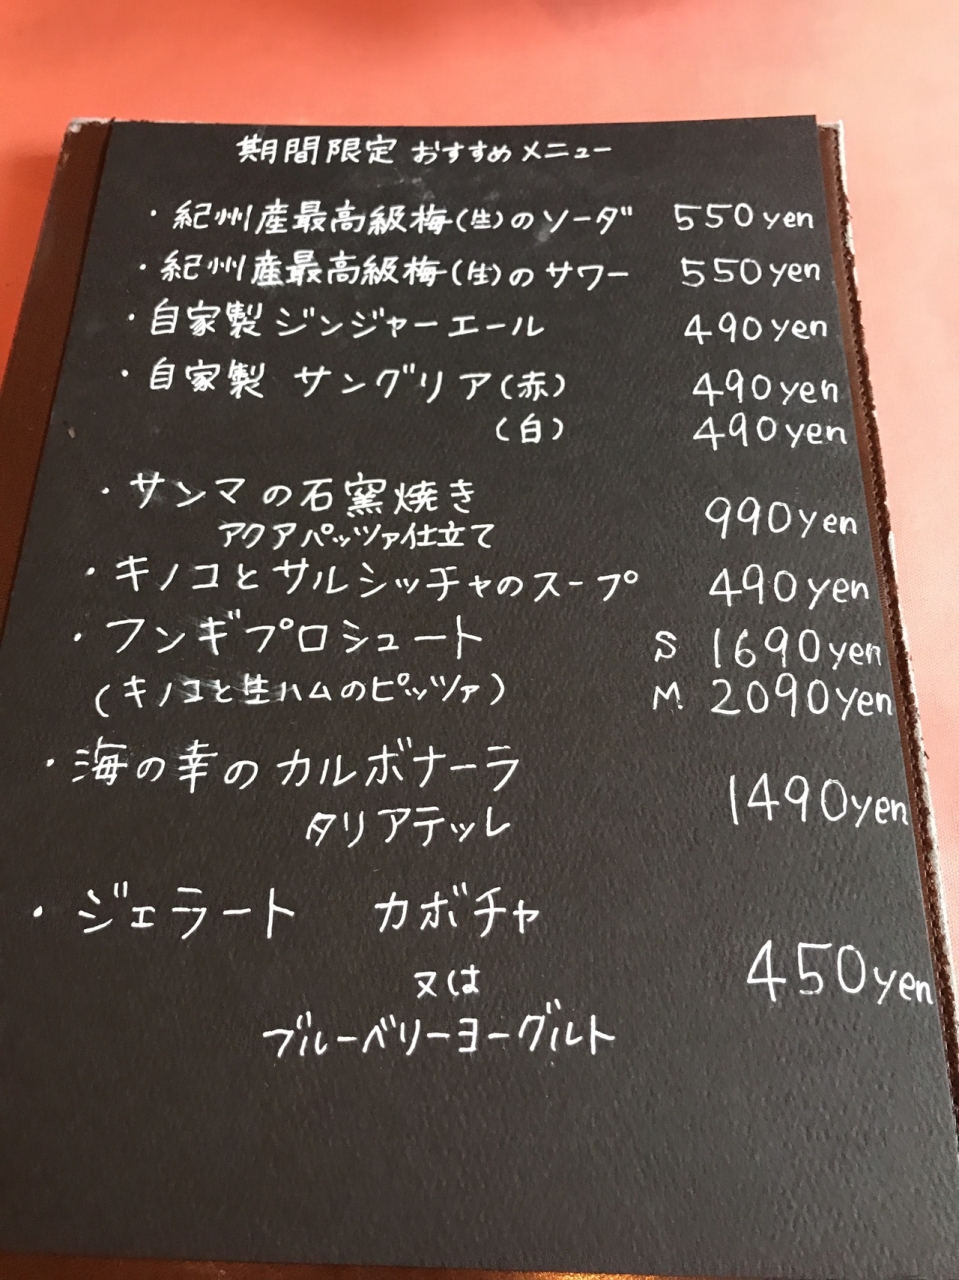 期間限定 おすすめメニュー
・紀州産最高級梅(生)のソーダ 550yen
・紀州産最高級梅(生)のサワー 550yen
・自家製ジンジャーエール 490yen
・自家製 サングリア(赤) 490yen
(白) 490yen
・サンマの石窯焼き
アクアパッツァ仕立て 990yen
・キノコとサルシッチャのスープ 490yen
・フンギプロシュート S 1690yen
(キノコと生ハムのピッツァ) M 2090yen
・海の幸のカルボナーラ
タリアテッレ 1490yen
・ジェラート カボチャ
又は 450yen
ブルーベリーヨーグルト